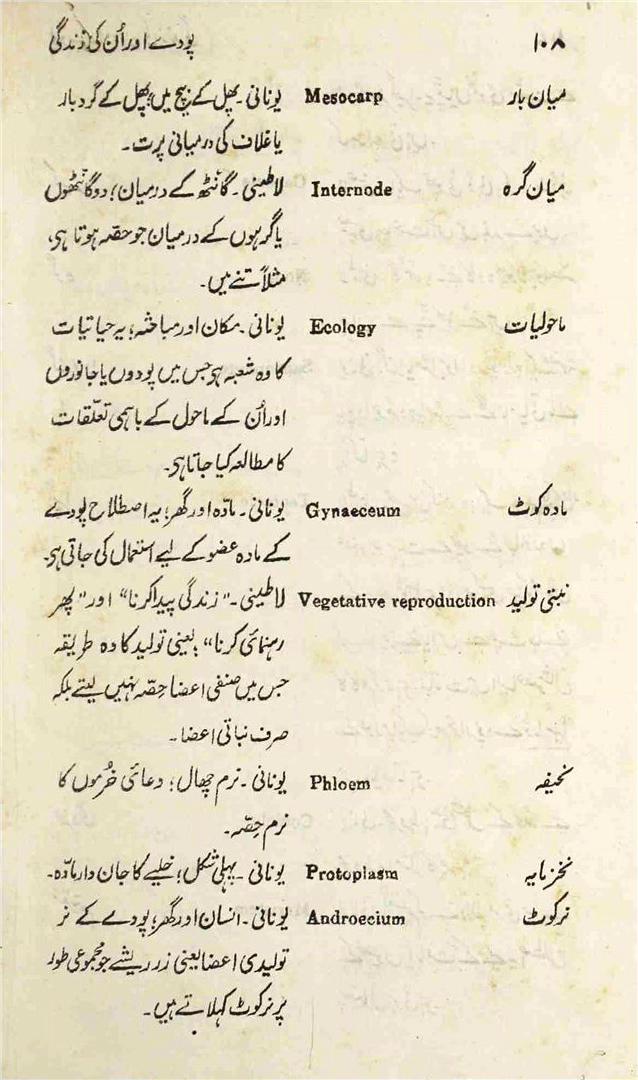 ۱۰۸ پودے اور اُن کی زندگی
میان بار Mesocarp یونانی۔ پھل کے بیچ میں؛ پھل کے گرد بار
یا غلاف کی درمیانی پرت۔
میان گرہ Internode لاطینی۔ گانٹھ کے درمیان؛ دو گانٹھوں
یا گرہوں کے درمیان جو حصّہ ہوتا ہی،
مثلاً تنے میں۔
ماحولیات Ecology یونانی۔ مکان اور مباحثہ؛ یہ حیاتیات
کا وہ شعبہ ہی جس میں پودوں یا جانوروں
اور اُن کے ماحول کے باہمی تعلّقات
کا مطالعہ کیا جاتا ہی۔
مادہ کوٹ Gynaeceum یونانی۔ مادّہ اور گھر؛ یہ اصطلاح پودے
کے مادہ عضو کے لیے استعمال کی جاتی ہی۔
نبتی تولید Vegetative reproduction لاطینی۔ "زندگی پیدا کرنا" اور "پھر
رہنمائی کرنا"؛ یعنی تولید کا وہ طریقہ
جس میں صنفی اعضا حِصّہ نہیں لیتے بلکہ
صرف نباتی اعضا۔
نخیفہ Phloem یونانی۔ نرم چھال؛ دعائی خُرموں کا
نرم حِصّہ۔
نخزمایہ Protoplasm یونانی۔ پہلی شکل؛ خلیے کا جان دار مادّہ۔
نرکوٹ Androecium یونانی۔ انسان اور گھر؛ پودے کے نر
تولیدی اعضا یعنی زر ریشے جو مجموعی طور
پر نرکوٹ کہلاتے ہیں۔